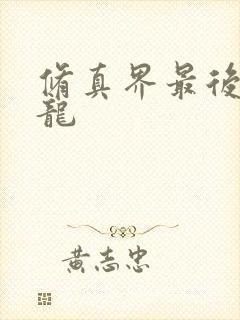 脩真界最後
龍
黃志忠